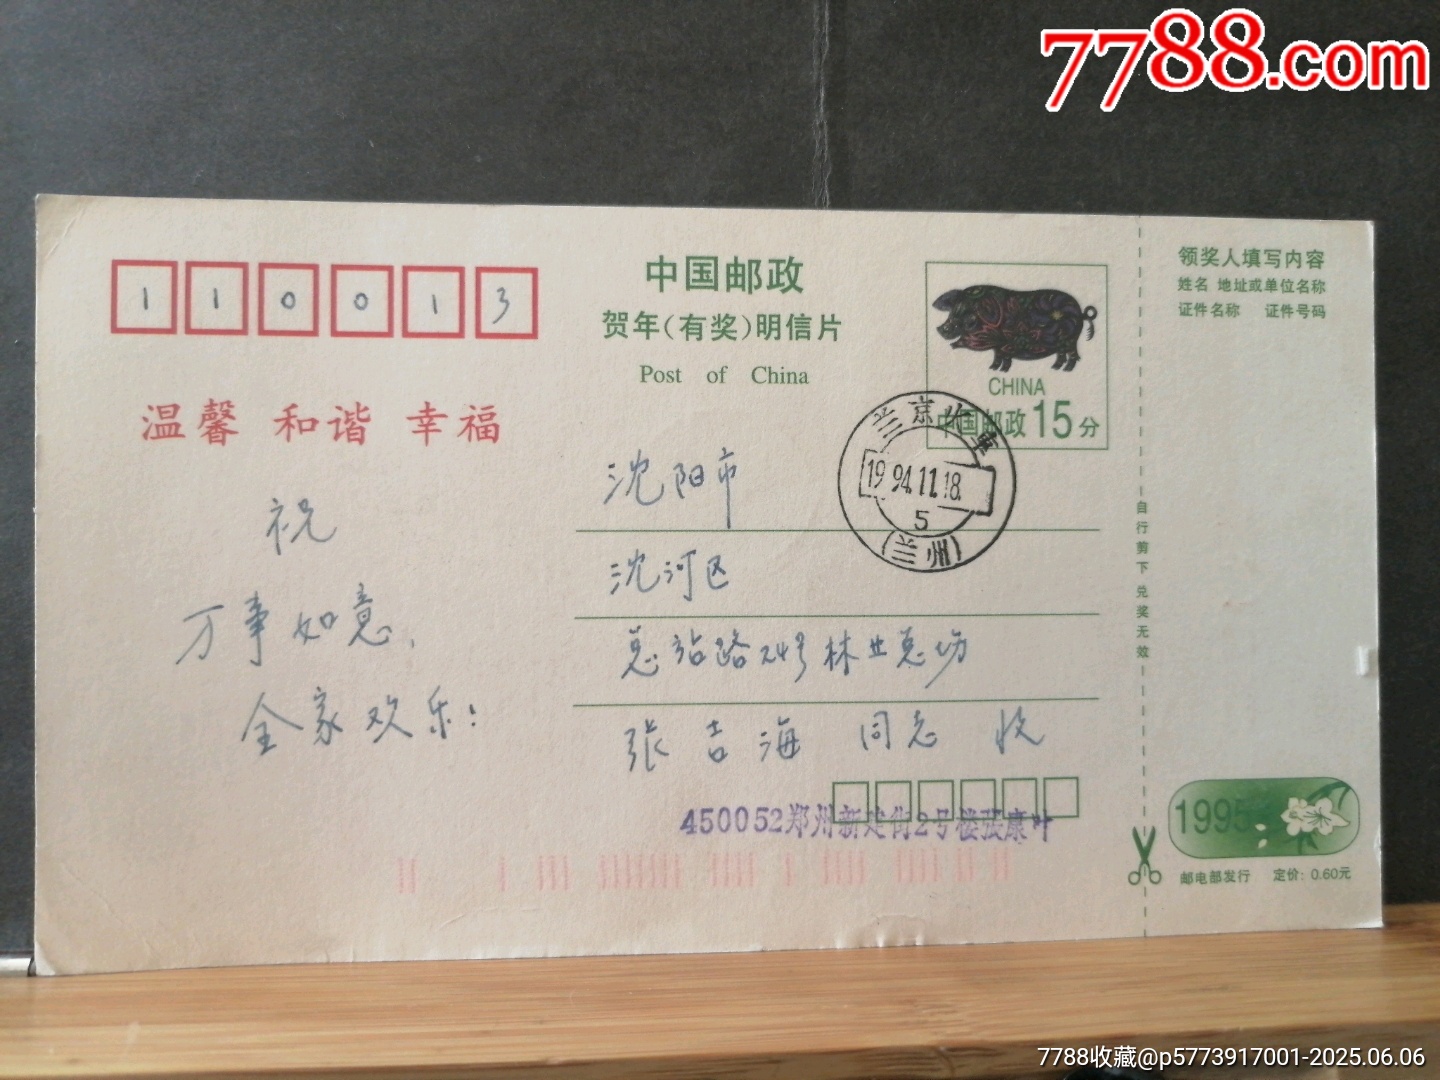 7788.com
110013
中国邮政
贺年(有奖)明信片
Post of China
CHINA
中国邮政15分
领奖人填写内容
姓名 地址或单位名称
证件名称 证件号码
温馨 和谐 幸福
兰京火车
1994.11.18.
5
(兰州)
祝
万事如意,
全家欢乐!
沈阳市
沈河区
总站路24号林业总场
张吉海 同志 收
450052郑州新建街2号楼张康叶
自行剪下 兑奖无效
1995
邮电部发行 定价: 0.60元
7788收藏@p5773917001-2025.06.06